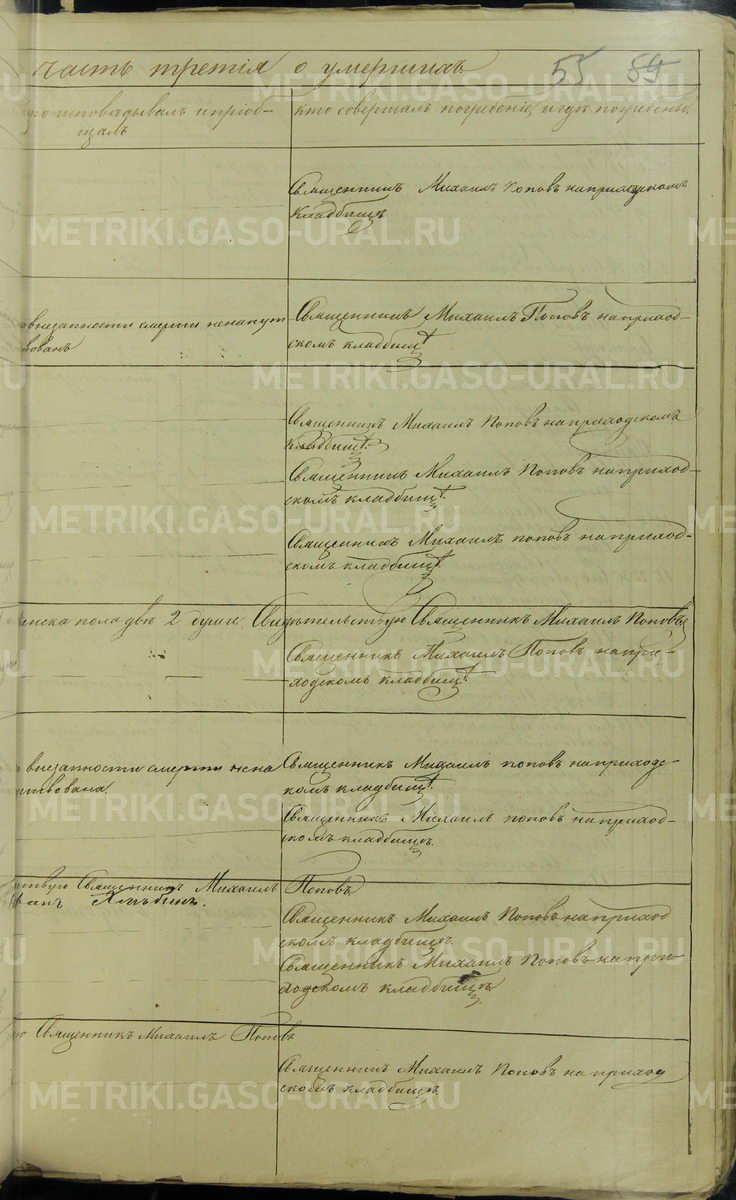 часть третія о умершихъ 55 89
кто исповѣдывалъ и пріоб-
щалъ
кто совершалъ погребеніе, и гдѣ погребены.
Священникъ Михаилъ Поповъ на приходскомъ
кладбищѣ
METRIKI.GASO-URAL.RU
внезапности смерти ненапут
вованъ
Священникъ Михаилъ Поповъ на приход-
скомъ кладбищѣ.
METRIKI.GASO-URAL.RU
Священникъ Михаилъ Поповъ на приходскомъ
кладбищѣ.
Священникъ Михаилъ Поповъ на приход-
скомъ кладбищѣ.
METRIKI.GASO-URAL.RU
Священникъ Михаилъ поповъ на приход-
скомъ кладбищѣ.
женска пола двѣ 2 души. Свидѣтельствую Священникъ Михаилъ Поповъ
Священникъ Михаилъ Поповъ на при-
ходскомъ кладбищѣ.
METRIKI.GASO-URAL.RU
внезапности смерти нена
ствована
Священникъ Михаилъ поповъ на приходс-
комъ кладбищѣ.
Священникъ Михаилъ поповъ на приход-
скомъ кладбищѣ.
METRIKI.GASO-URAL.RU
ствую Священникъ Михаилъ Поповъ
Священникъ Михаилъ Поповъ на приход
скомъ кладбищѣ.
METRIKI.GASO-URAL.RU
Священникъ Михаилъ Поповъ на при
ходскомъ кладбищѣ.
Священникъ Михаилъ Поповъ
Священникъ Михаилъ Поповъ на приход
скомъ кладбищѣ.
METRIKI.GASO-URAL.RU